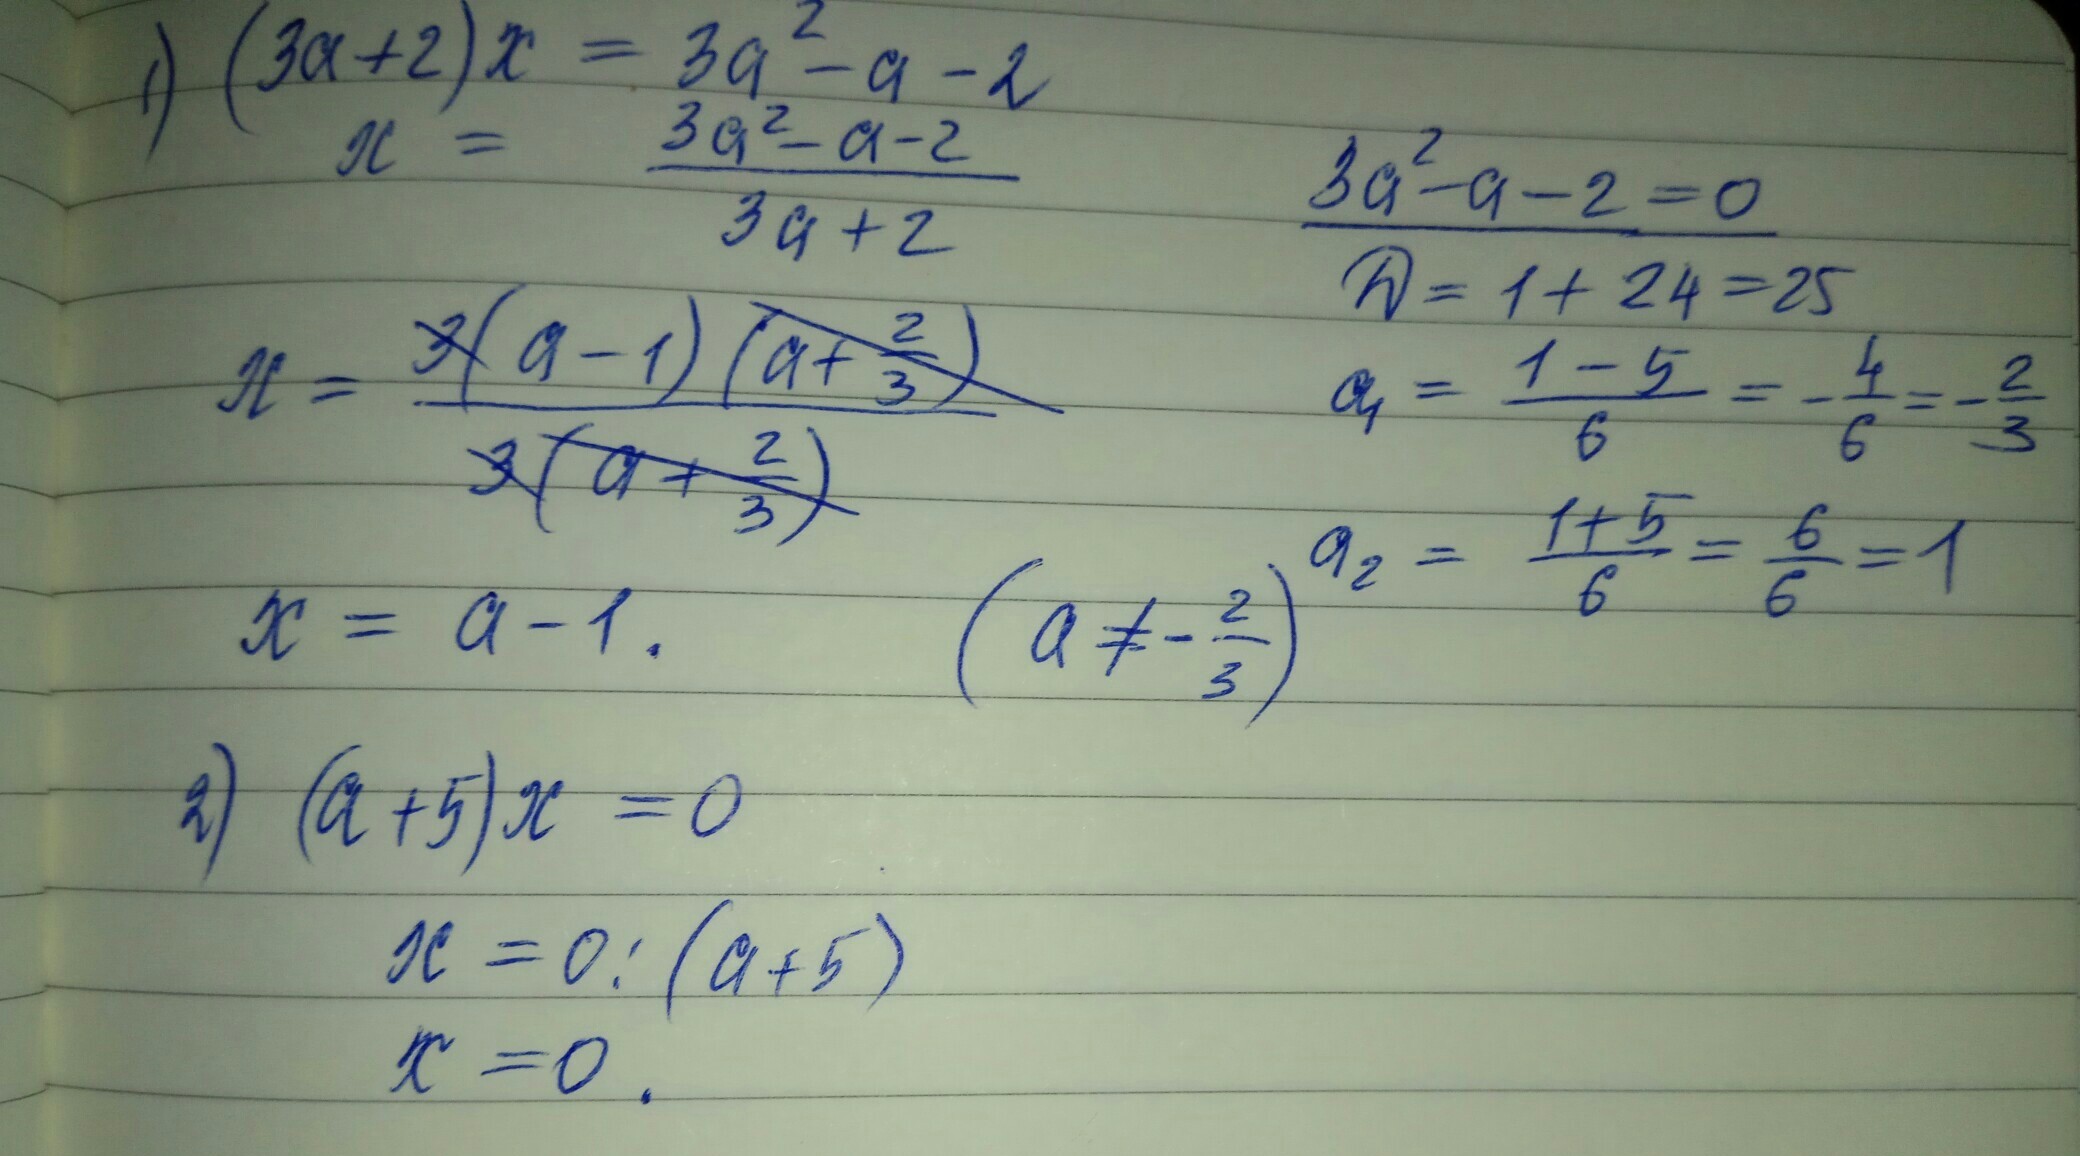 1) (3a+2)x = 3a²-a-2
x = (3a²-a-2)/(3a+2)
x = 3(a-1)(a+2/3)/3(a+2/3)
x = a-1. (a≠-2/3)
3a²-a-2=0
D=1+24=25
a₁ = (1-5)/6 = -4/6 = -2/3
a₂ = (1+5)/6 = 6/6 = 1
2) (a+5)x = 0
x = 0:(a+5)
x = 0.